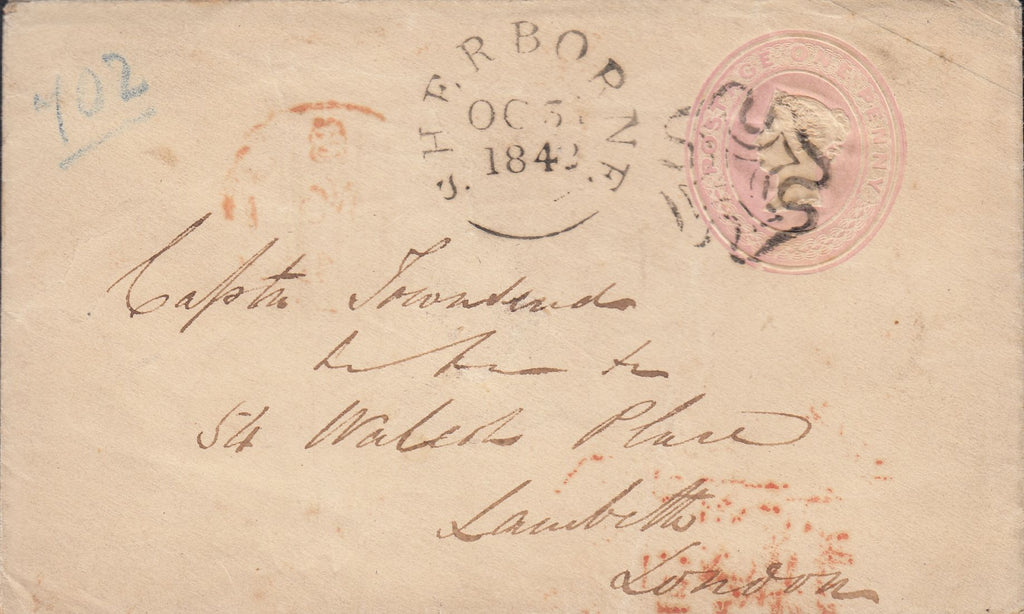 402
SHERBORNE
OC 3
1842
POSTAGE ONE PENNY
Captn Townsend
54 Walcot Place
Lambeth
London